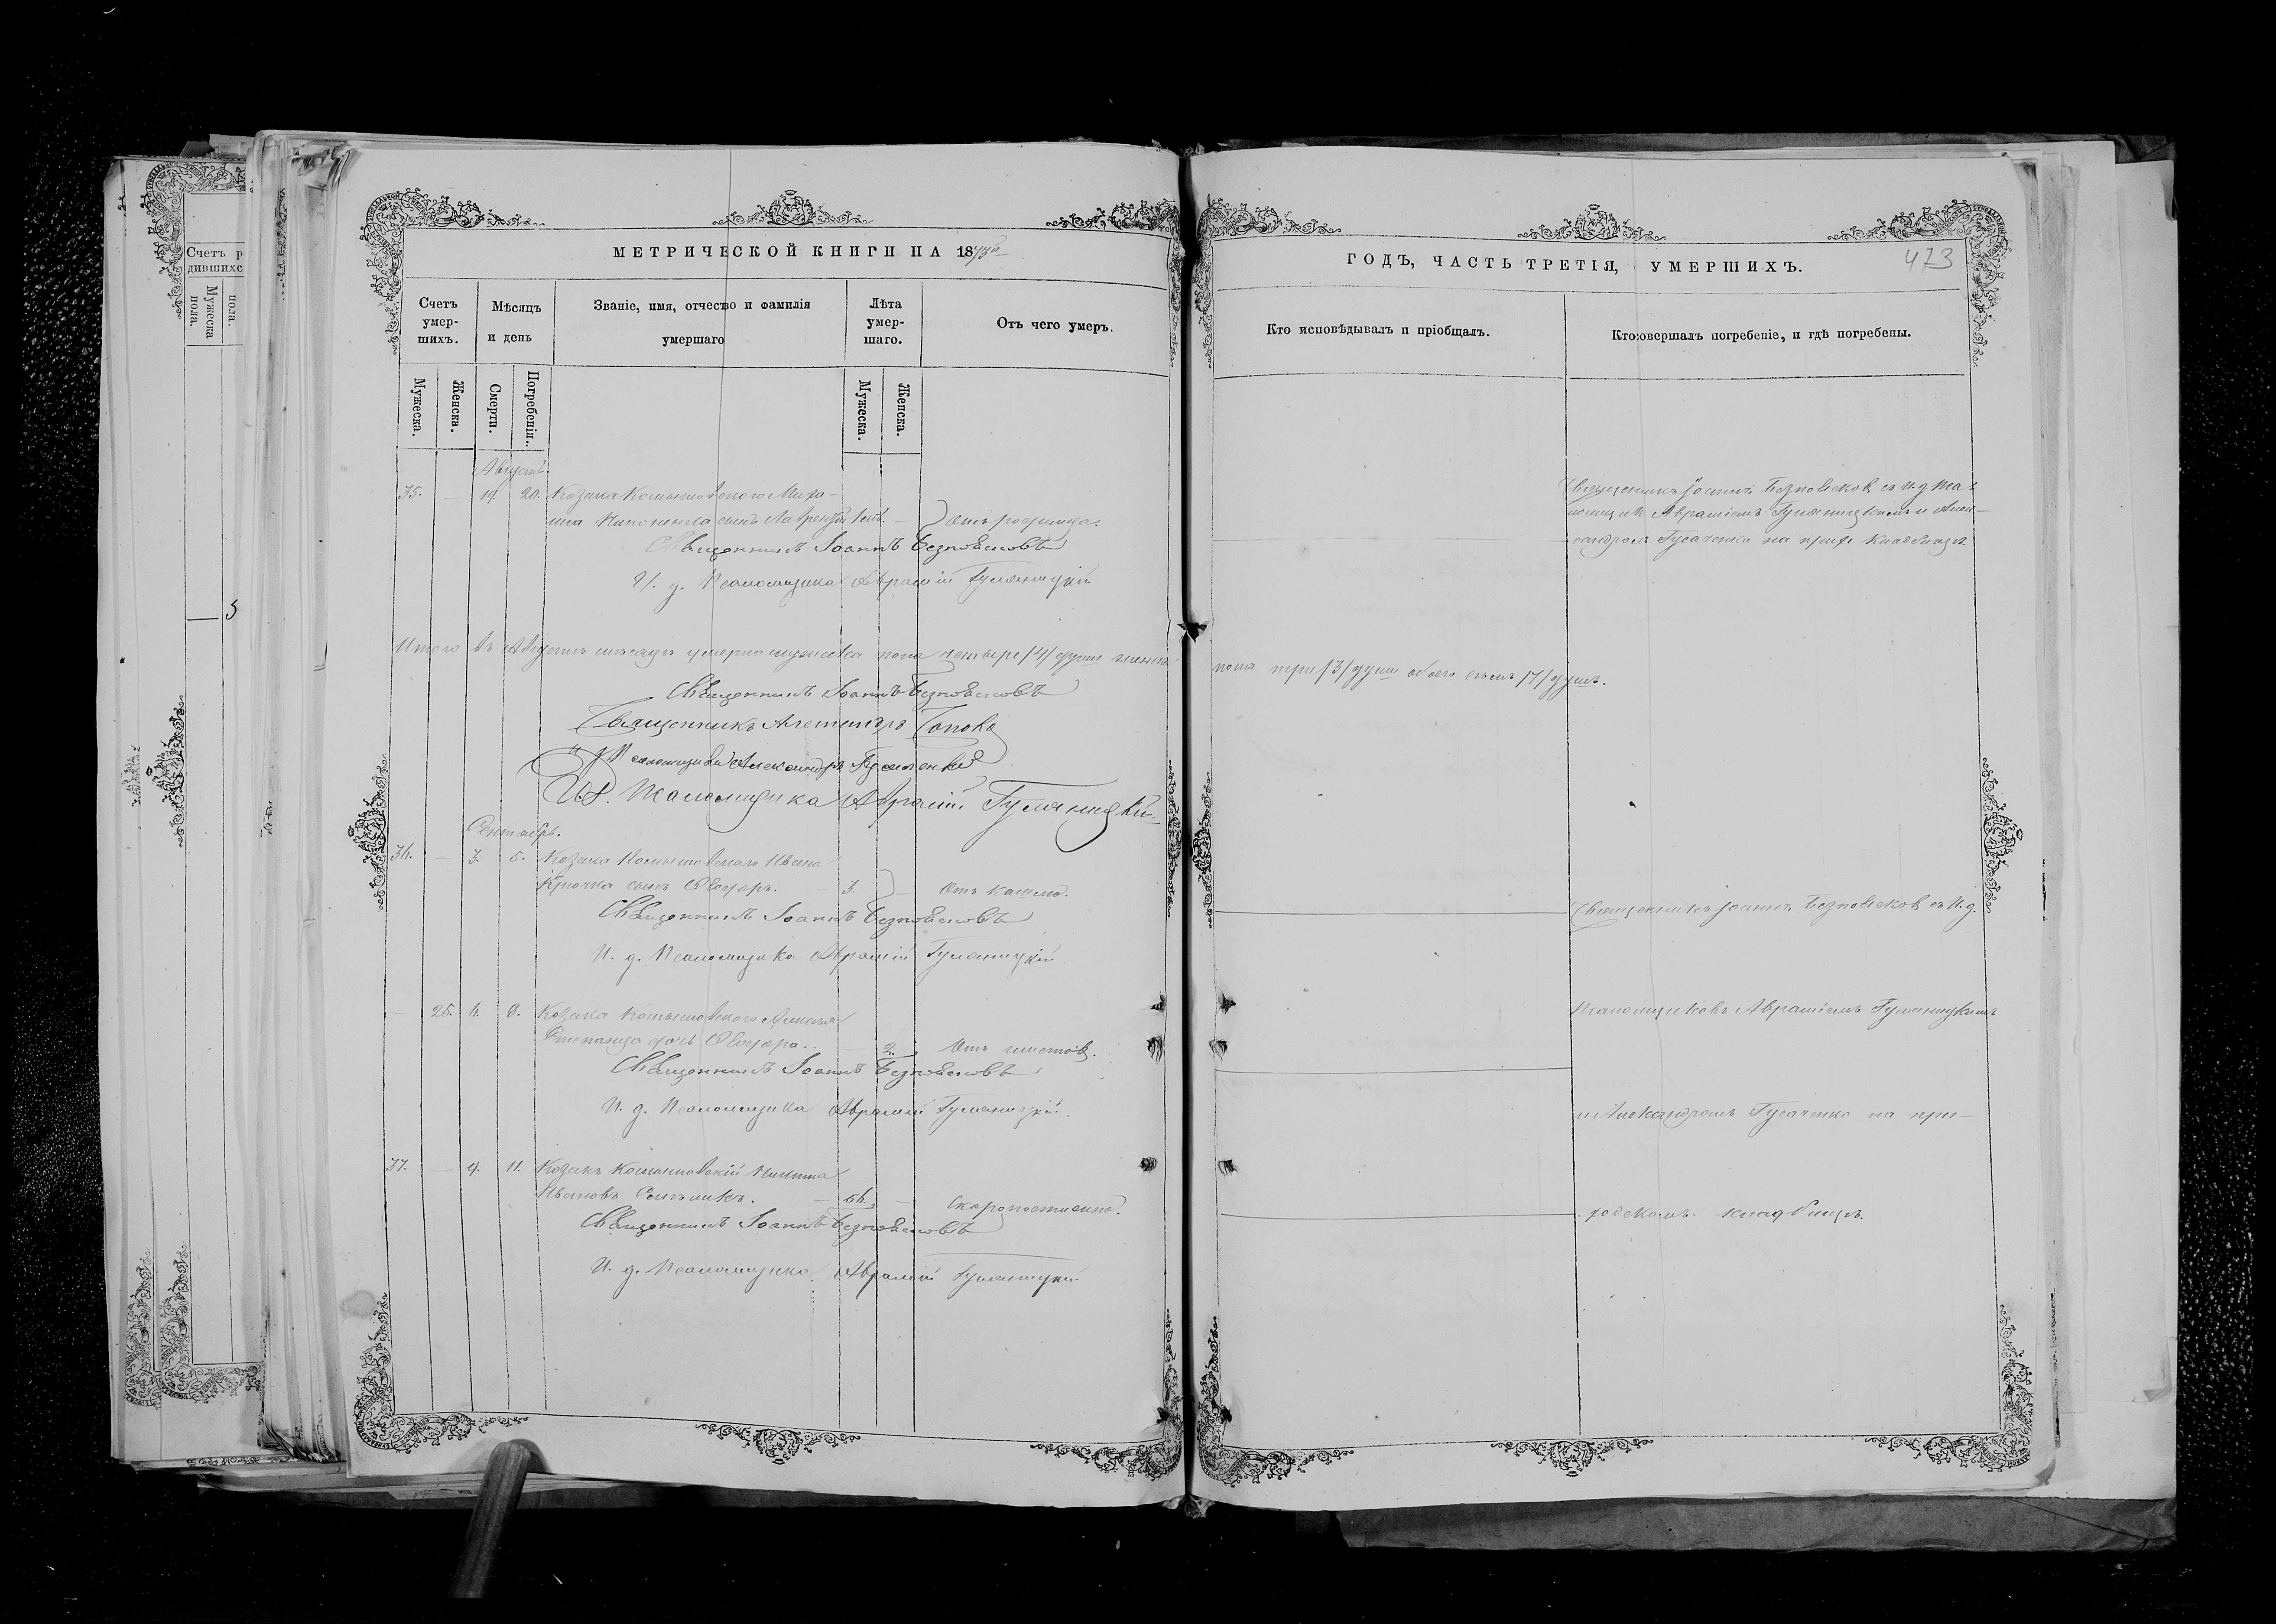 Счетъ р
дившихс
Мужеска
пола.
пола.
3
МЕТРИЧЕСКОЙ КНИГИ НА 187
Счетъ умер-шихъ.
Мѣсяцъ и день
Званіе, имя, отчество и фамилія умершаго
Лѣта умер-шаго.
Отъ чего умеръ.
Мужеска.
Женска.
Смерти.
Погребенія.
Мужеска.
Женска.
Августъ.
35. — 20. Козака Комышовскаго
сынъ Лаврентій
Священникъ Іоаннъ Безповсковъ
И. д. Псаломщика Аврамій Гуляницкій
Итого въ Августѣ мѣсяцѣ умерло мужеска пола четыре /4/ души женска
Священникъ Іоаннъ Безповсковъ
Священникъ Поповъ
И д Псаломщика Александръ Гусаченко
И.д. Псаломщика Аврамій Гуляницкій
Сентябрь.
36. — 3. 5. Козака Комышовскаго Ивана
Крючка сынъ Ѳеодоръ. — 3. — Отъ кашля.
Священникъ Іоаннъ Безповсковъ
И. д. Псаломщика Аврамій Гуляницкій
— 25. 6. 8. Козака Комышовскаго Алексѣя
дочь Ѳеодора. — 2. Отъ глистовъ.
Священникъ Іоаннъ Безповсковъ
И. д. Псаломщика Аврамій Гуляницкій.
37. — 9. 11. Козакъ Комышовскій Никита
Ивановъ — 56. — Скоропостижно.
Священникъ Іоаннъ Безповсковъ
И. д. Псаломщика Аврамій Гуляницкій
ГОДЪ, ЧАСТЬ ТРЕТІЯ, УМЕРШИХЪ.
473
Кто исповѣдывалъ и пріобщалъ.
Кто совершалъ погребеніе, и гдѣ погребены.
Священникъ Іоаннъ Безповсковъ съ И. д. Пса-
Авраміемъ Гуляницкимъ и Алек-
сандромъ Гусаченко на кладбищѣ.
пола три /3/ души обоего семь /7/ душъ.
Священникъ Іоаннъ Безповсковъ съ И. д.
Псаломщиковъ Авраміемъ Гуляницкимъ
и Александромъ Гусаченко на при-
ходскомъ кладбищѣ.